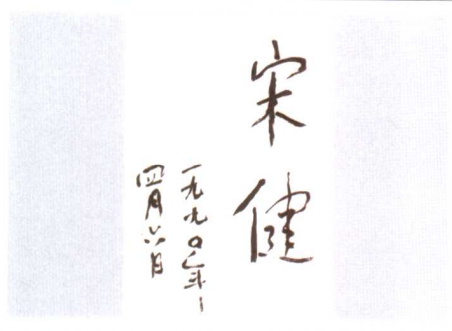 宋健
一九九〇年
四月六日